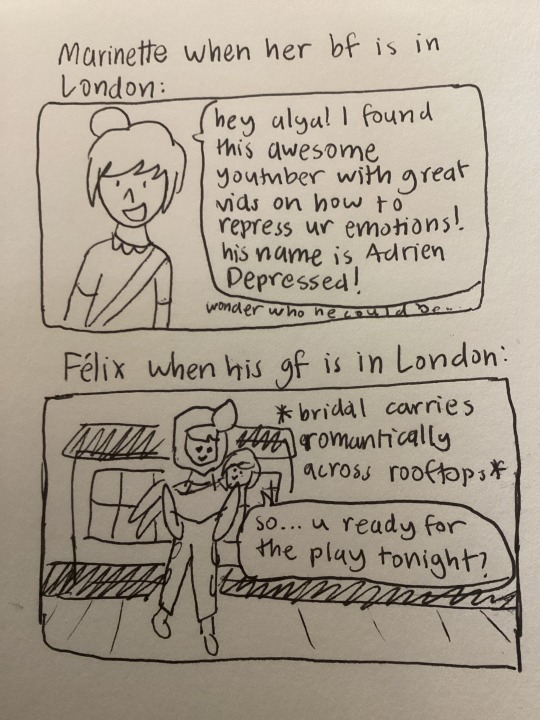 Marinette when her bf is in
London:
hey alya! I found
this awesome
youtuber with great
vids on how to
repress ur emotions!
his name is Adrien
Depressed!
wonder who he could be...
Félix when his gf is in London:
*bridal carries
romantically
across rooftops*
so... u ready for
the play tonight?